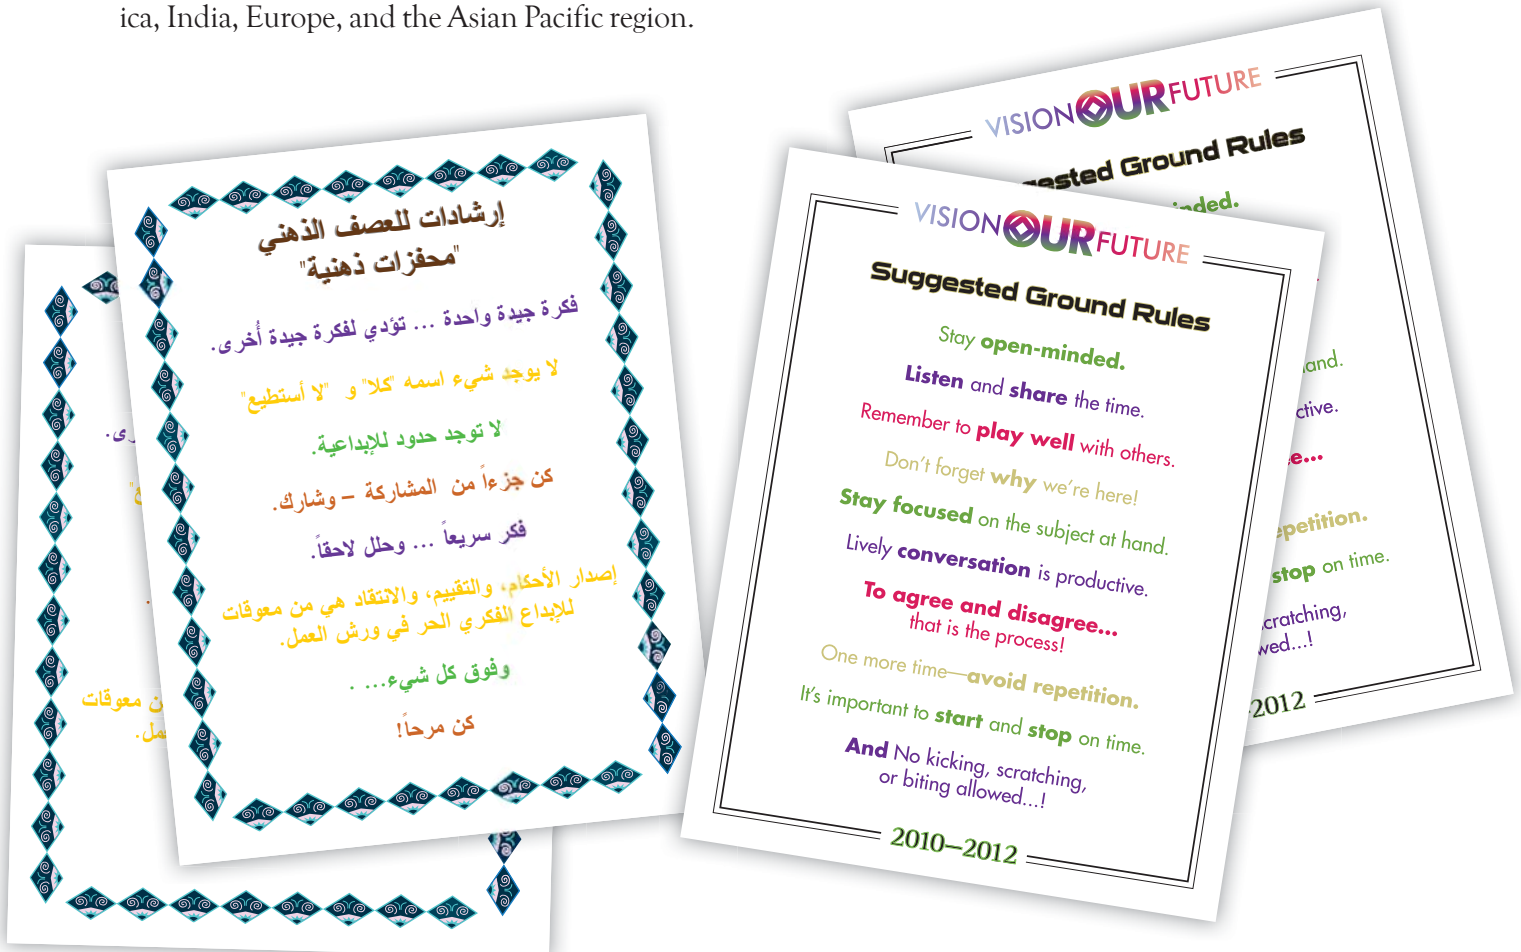 ica, India, Europe, and the Asian Pacific region.
إرشادات للعصف الذهني
"محفزات ذهنية"
فكرة جيدة واحدة ... تؤدي لفكرة جيدة أُخرى.
لا يوجد شيء اسمه "كلا" و "لا أستطيع"
لا توجد حدود للإبداعية.
كن جزءاً من المشاركة – وشارك.
فكر سريعاً ... وحلل لاحقاً.
إصدار الأحكام، والتقييم، والانتقاد هي من معوقات
للإبداع الفكري الحر في ورش العمل.
وفوق كل شيء... .
كن مرحاً!
معوقات
VISION OUR FUTURE
Suggested Ground Rules
Stay open-minded.
Listen and share the time.
Remember to play well with others.
Don't forget why we're here!
Stay focused on the subject at hand.
Lively conversation is productive.
To agree and disagree...
that is the process!
One more time—avoid repetition.
It's important to start and stop on time.
And No kicking, scratching,
or biting allowed...!
2010–2012
VISION OUR FUTURE
Ground Rules
stop on time.
2012